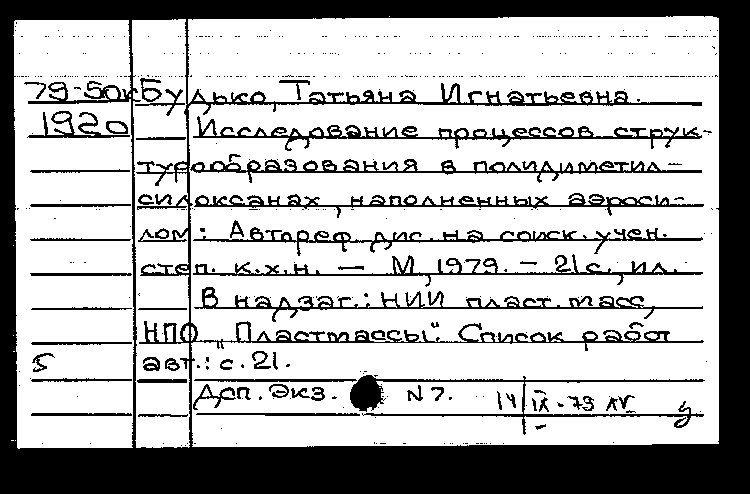 79-50к Будько, Татьяна Игнатьевна.
1920 Исследование процессов струк-
турообразования в полидиметил-
силоксанах, наполненных аэроси-
лом: Автореф. дис. на соиск. учен.
степ. к.х.н. — М, 1979. — 21 с., ил.
В надзаг.: НИИ пласт. масс,
НПО „Пластмассы". Список работ
5 авт.: с. 21.
Доп. Экз. N 7. 14 IX - 79